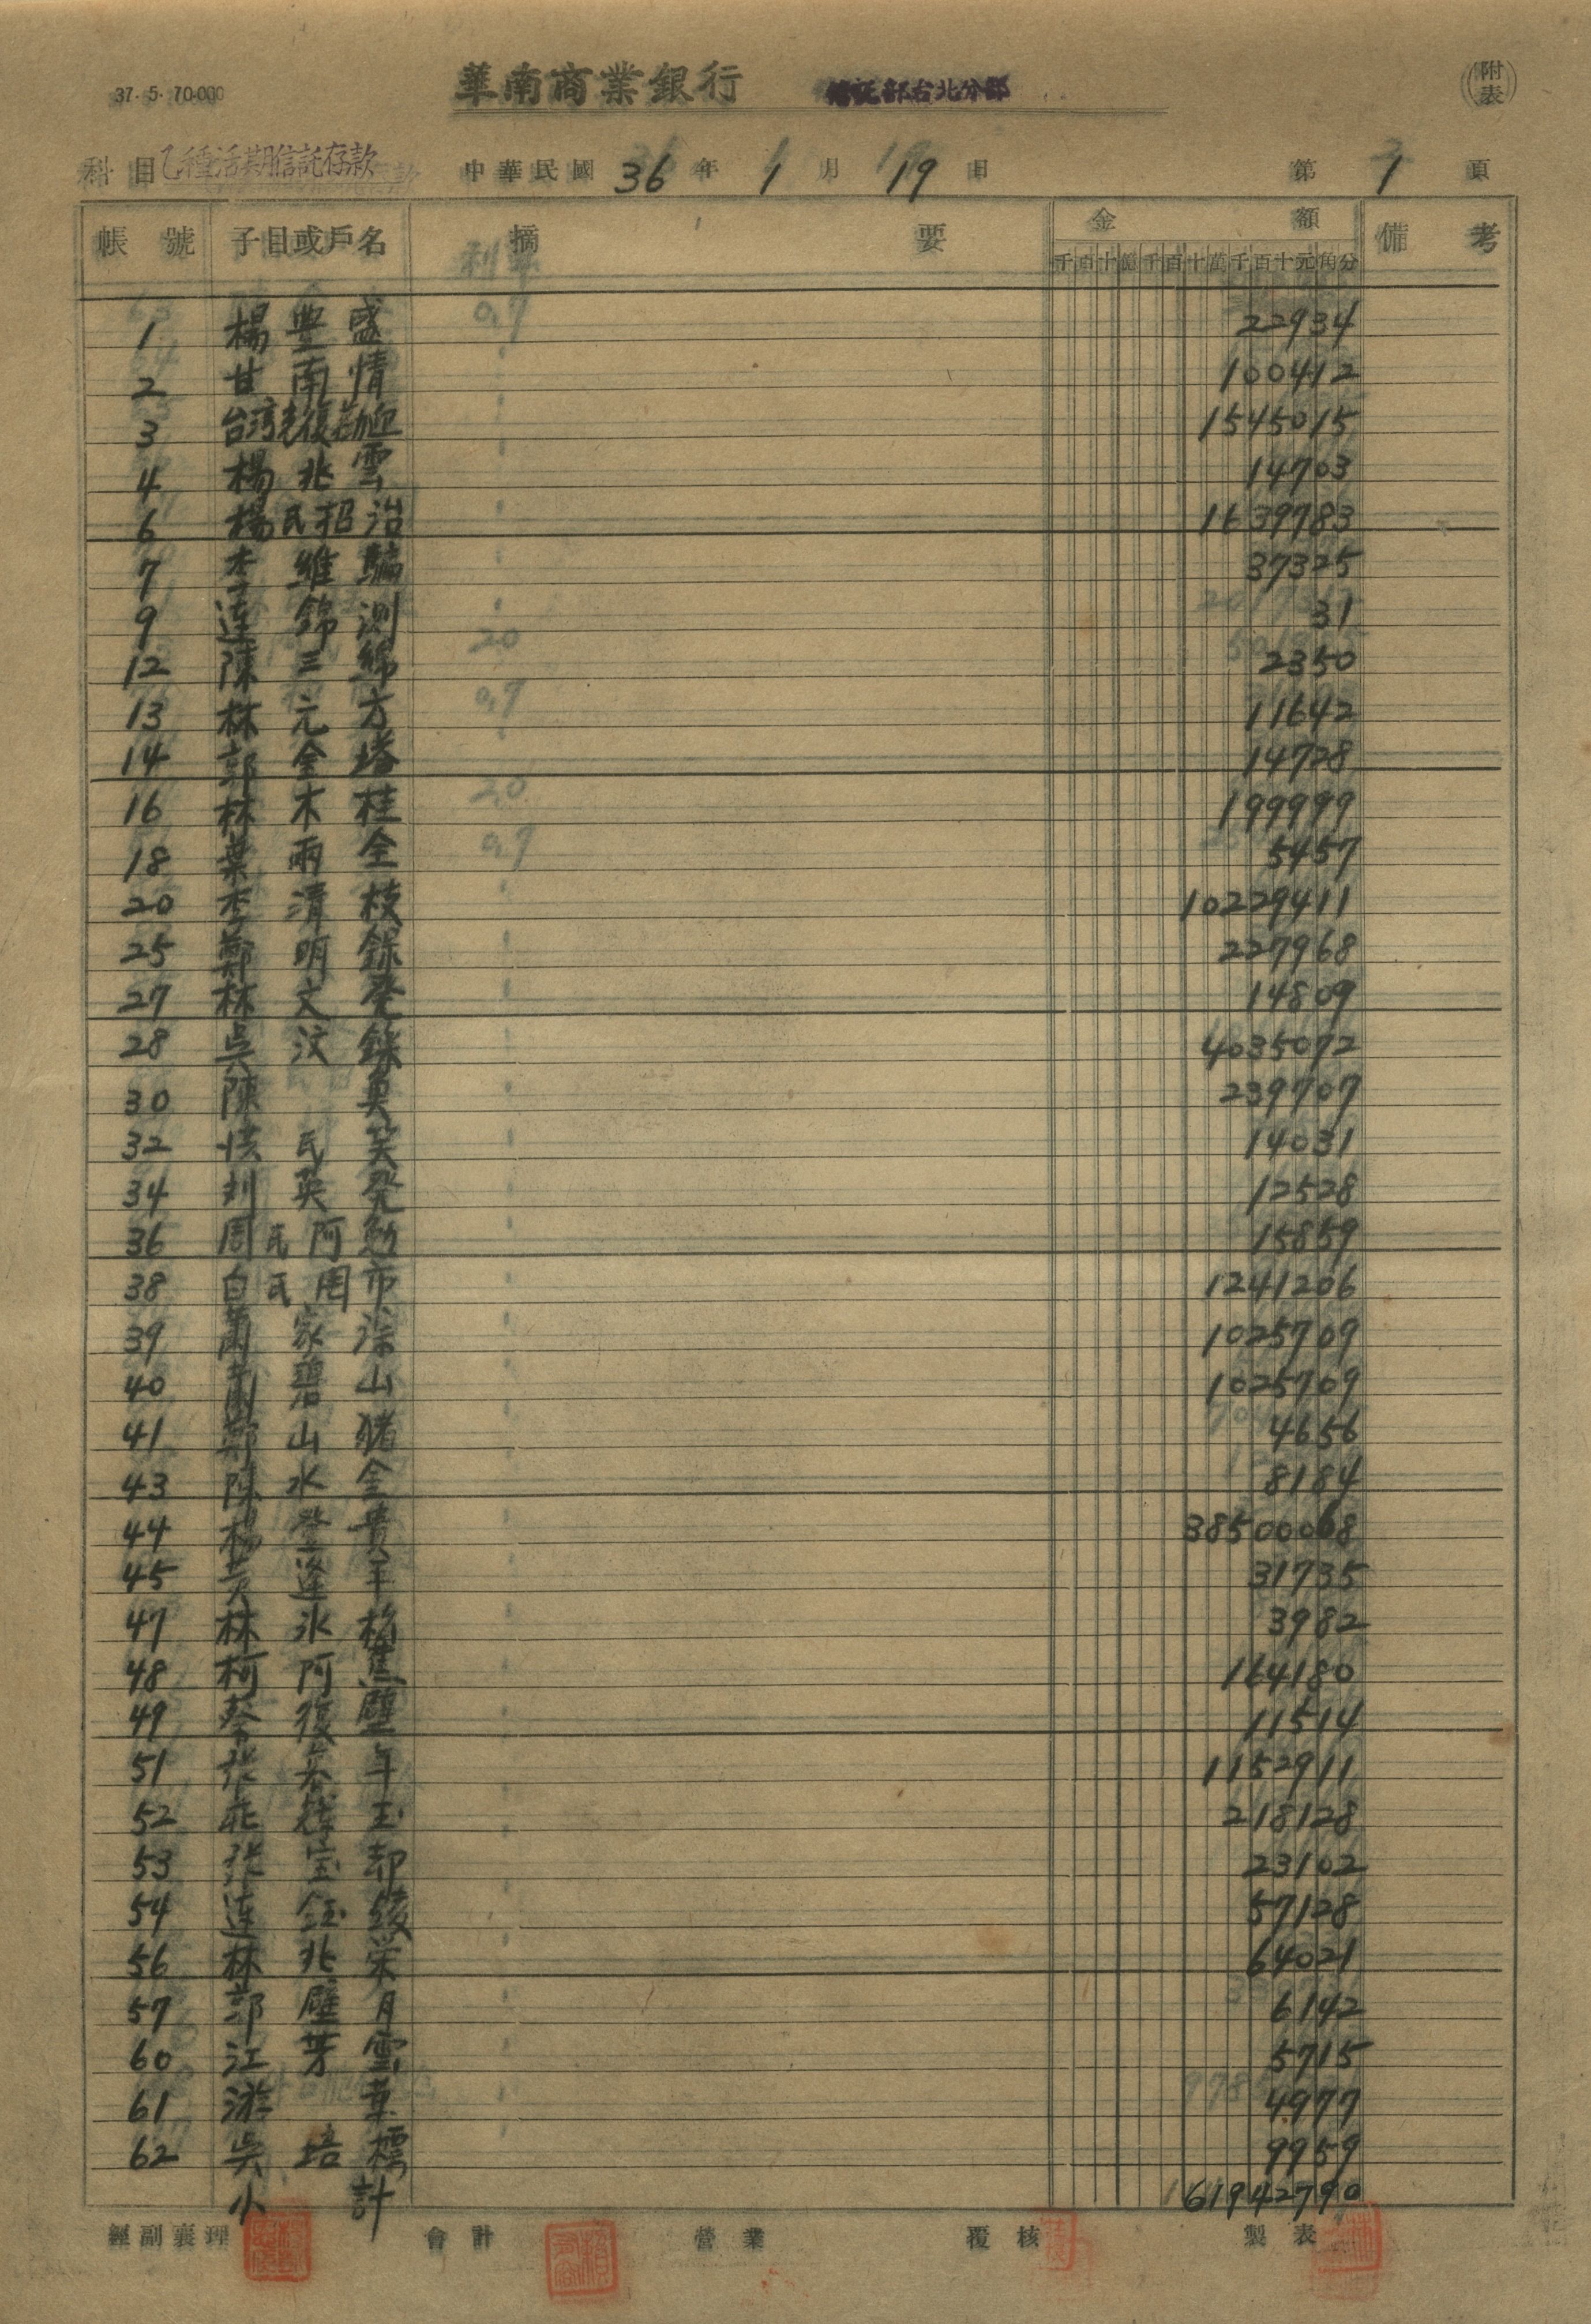 37. 5. 70.000
華南商業銀行 信託部台北分部
(附表)
科目 乙種活期信託存款 中華民國 36 年 1 月 19 日 第 1 頁
帳號 子目或戶名 摘要 金額 備考
千百十億千百十萬千百十元角分
1 楊豊盛 22934
2 甘南情 100412
3 1545015
4 楊兆雲 14703
6 楊氏招治 1639783
7 李維騙 37325
9 連錦測 31
12 陳三綿 2350
13 林元方 11642
14 郭金塔 14728
16 林木桂 199999
18 葉雨全 5457
20 李清枝 10229411
25 鄭明錄 227968
27 林文發 14809
28 吳汶錄 4035072
30 陳 239707
32 氏笑 14031
34 英発 12528
36 周氏阿勉 15859
38 白氏罔市 1241206
39 蕭家 1025709
40 蕭碧山 1025709
41 鄭山豬 4656
43 陳水金 8184
44 楊登貴 38500068
45 黃逢年 31735
47 林氷 3982
48 柯阿 164180
49 蔡復壁 11514
51 張 年 1152911
52 莊 玉 218128
53 張宝却 23102
54 連鈺綾 57128
56 林兆栄 64021
57 郭壁月 6142
60 江芽雲 5715
61 游 4977
62 吳培標 9959
小計 61942790
經副襄理 會計 營業 覆核 製表